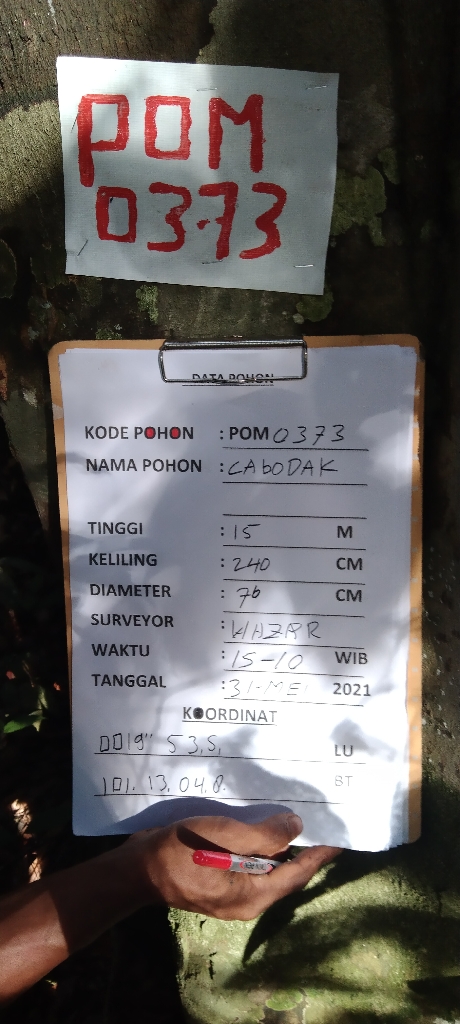 POM
0373
DATA POHON
KODE POHON : POM 0373
NAMA POHON : CABODAK
TINGGI : 15 M
KELILING : 240 CM
DIAMETER : 76 CM
SURVEYOR : WAZAR
WAKTU : 15-10 WIB
TANGGAL : 31-MEI 2021
KOORDINAT
0019" 53,5, LU
101. 13. 04.8. BT